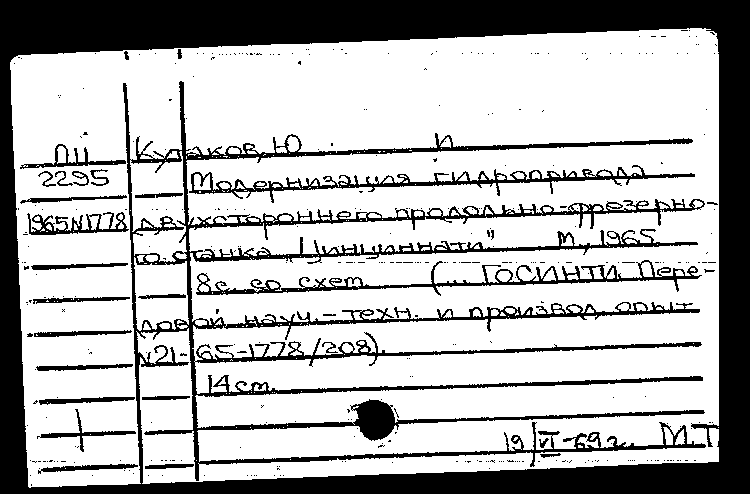 ПЦ Кулаков, Ю И
2295 Модернизация гидропривода
1965N1778 двухстороннего продольно-фрезерно-
го станка „Цинциннати" М., 1965
8с. со схем. (... ГОСИНТИ. Пере-
довой науч.-техн. и производ. опыт
N21-65-1778/208).
14 см.
1
19/VI-69г. М.Т.